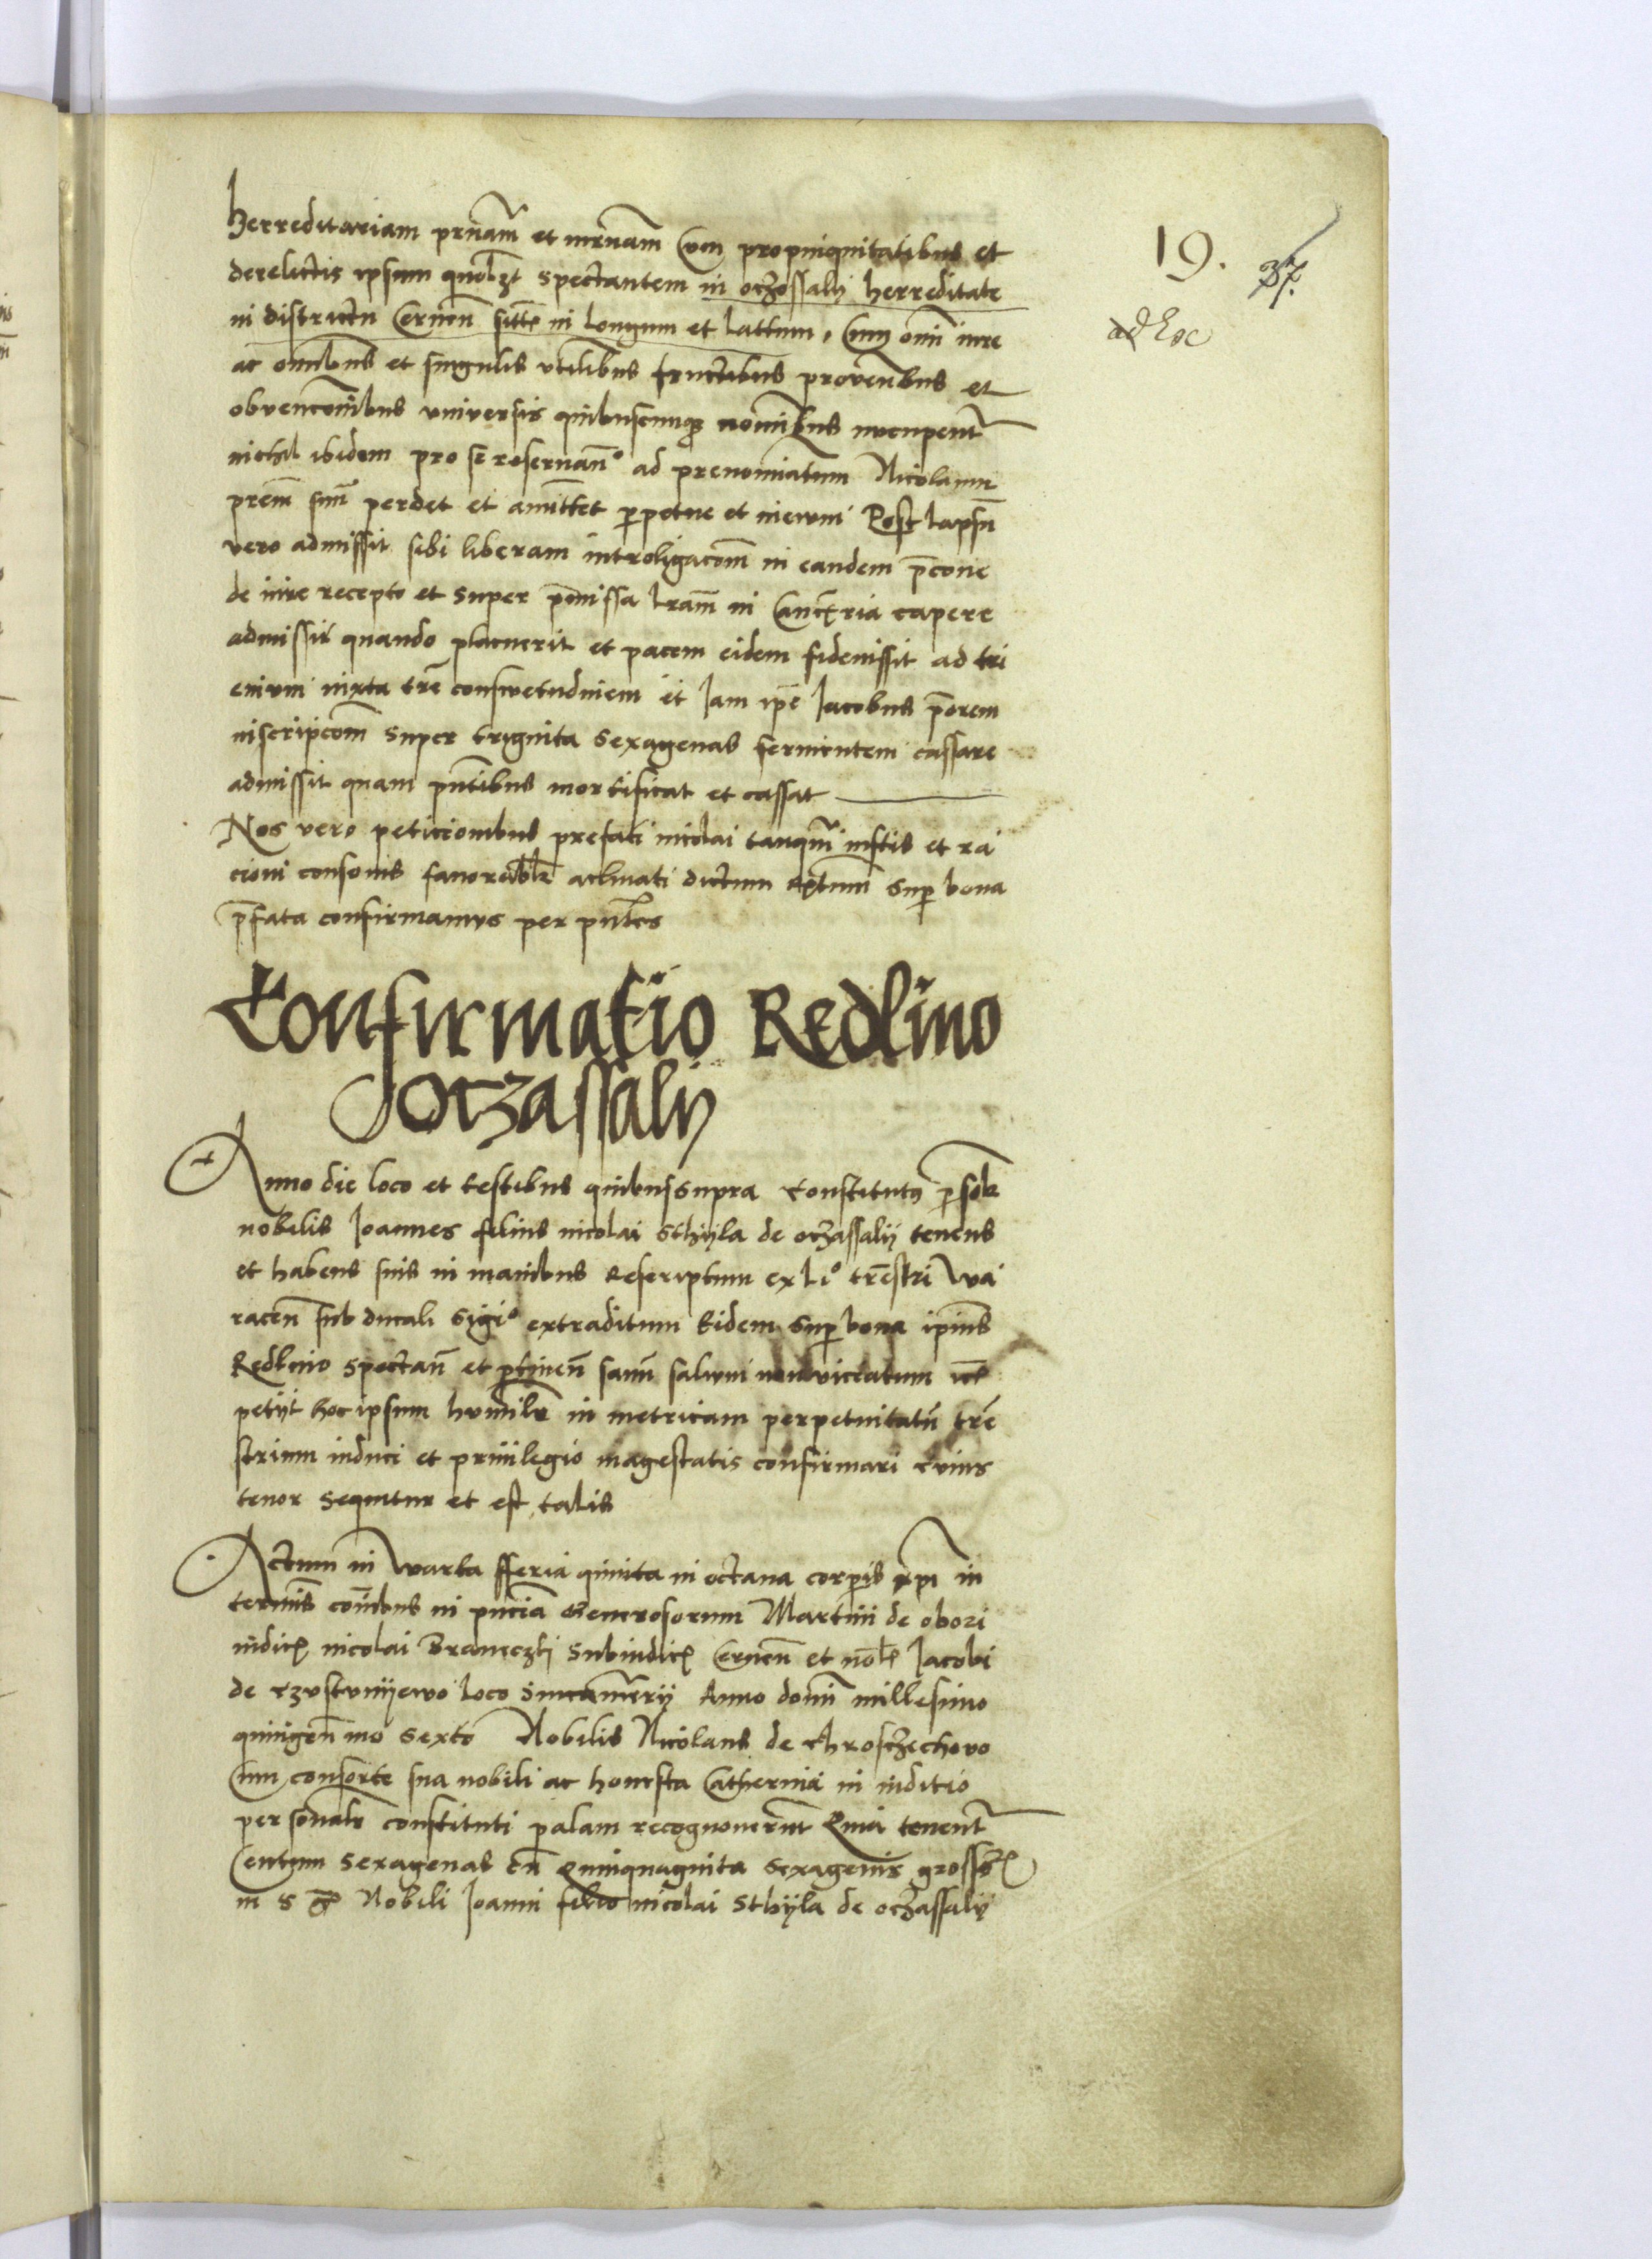 herreditariam prnam et mrnam cum propinquitatibus et
19.
37.
derelictis ipsum quolzt spectantem in oczossaly herreditate
in districtu Cernen sitte in longum et lattum, Cum omi iure
ad Eoc
ac omibus et singulis vtilibus fructibus prouentibus et
obvencoibus vniversis quibuscumque nomibus nucupent
nichil ibidem pro se reservan° ad prenomiatum Nicolaum
prem suu perdet et amittet perpetue et inevum Post lapsu
vero admissit sibi liberam introligacom in eandem pcone
de iure recepto et super pmissa lram in Canctria capere
admissit quando placuerit et pacem eidem fideiussit ad tri
enium iuxta tre conswetudinem et Iam ipe Jacobus porem
inscripcom super triginta sexagenas servientem cassare
admissit quam pntibus mortificat et cassat
Nos vero peticionibus prefati nicolai tanqm iustis et ra
cioni consonis fauorabilr aclinati dictum Rptum sup bona
pfata confirmamvs per pntes
Confirmatio Redlino
Oczassaly
Anno die loco et testibus quibus supra Constitutus psolr
nobilis Joannes filius nicolai Sthyla de oczassaly tenens
et habens suis in manibus Rescriptum ex Li° trestri Wa
racen sub ducali sigi° extraditum Eidem sup bona ipius
Redlino spectan et ptinen sanu salwm non viciatum
petyt hoc ipsum humilr in metricam perpetuitatu tre
strium induci et priuilegio magestatis confirmari cuius
tenor sequitur et est talis
Actum in Warta fferia quinta in octaua corpis xpi in
termis coibus in pncia Generosorum Martini de obori
iudic nicolai Braneczki Subiudic Cernen et nobl Jacobi
de Czustunyewo loco Succamerarii Anno domi millesimo
quingen mo sexto Nobilis Nicolaus de Chroschechowo
Cum consorte sua nobili ac honesta Catherina in iuditio
personalr constituti palam recognouerut Quia tenent
Centum sexagenas cu Quinquaginta Sexagenis grossor
in s gr Nobili Joanni filio nicolai Sthyla de oczassaly